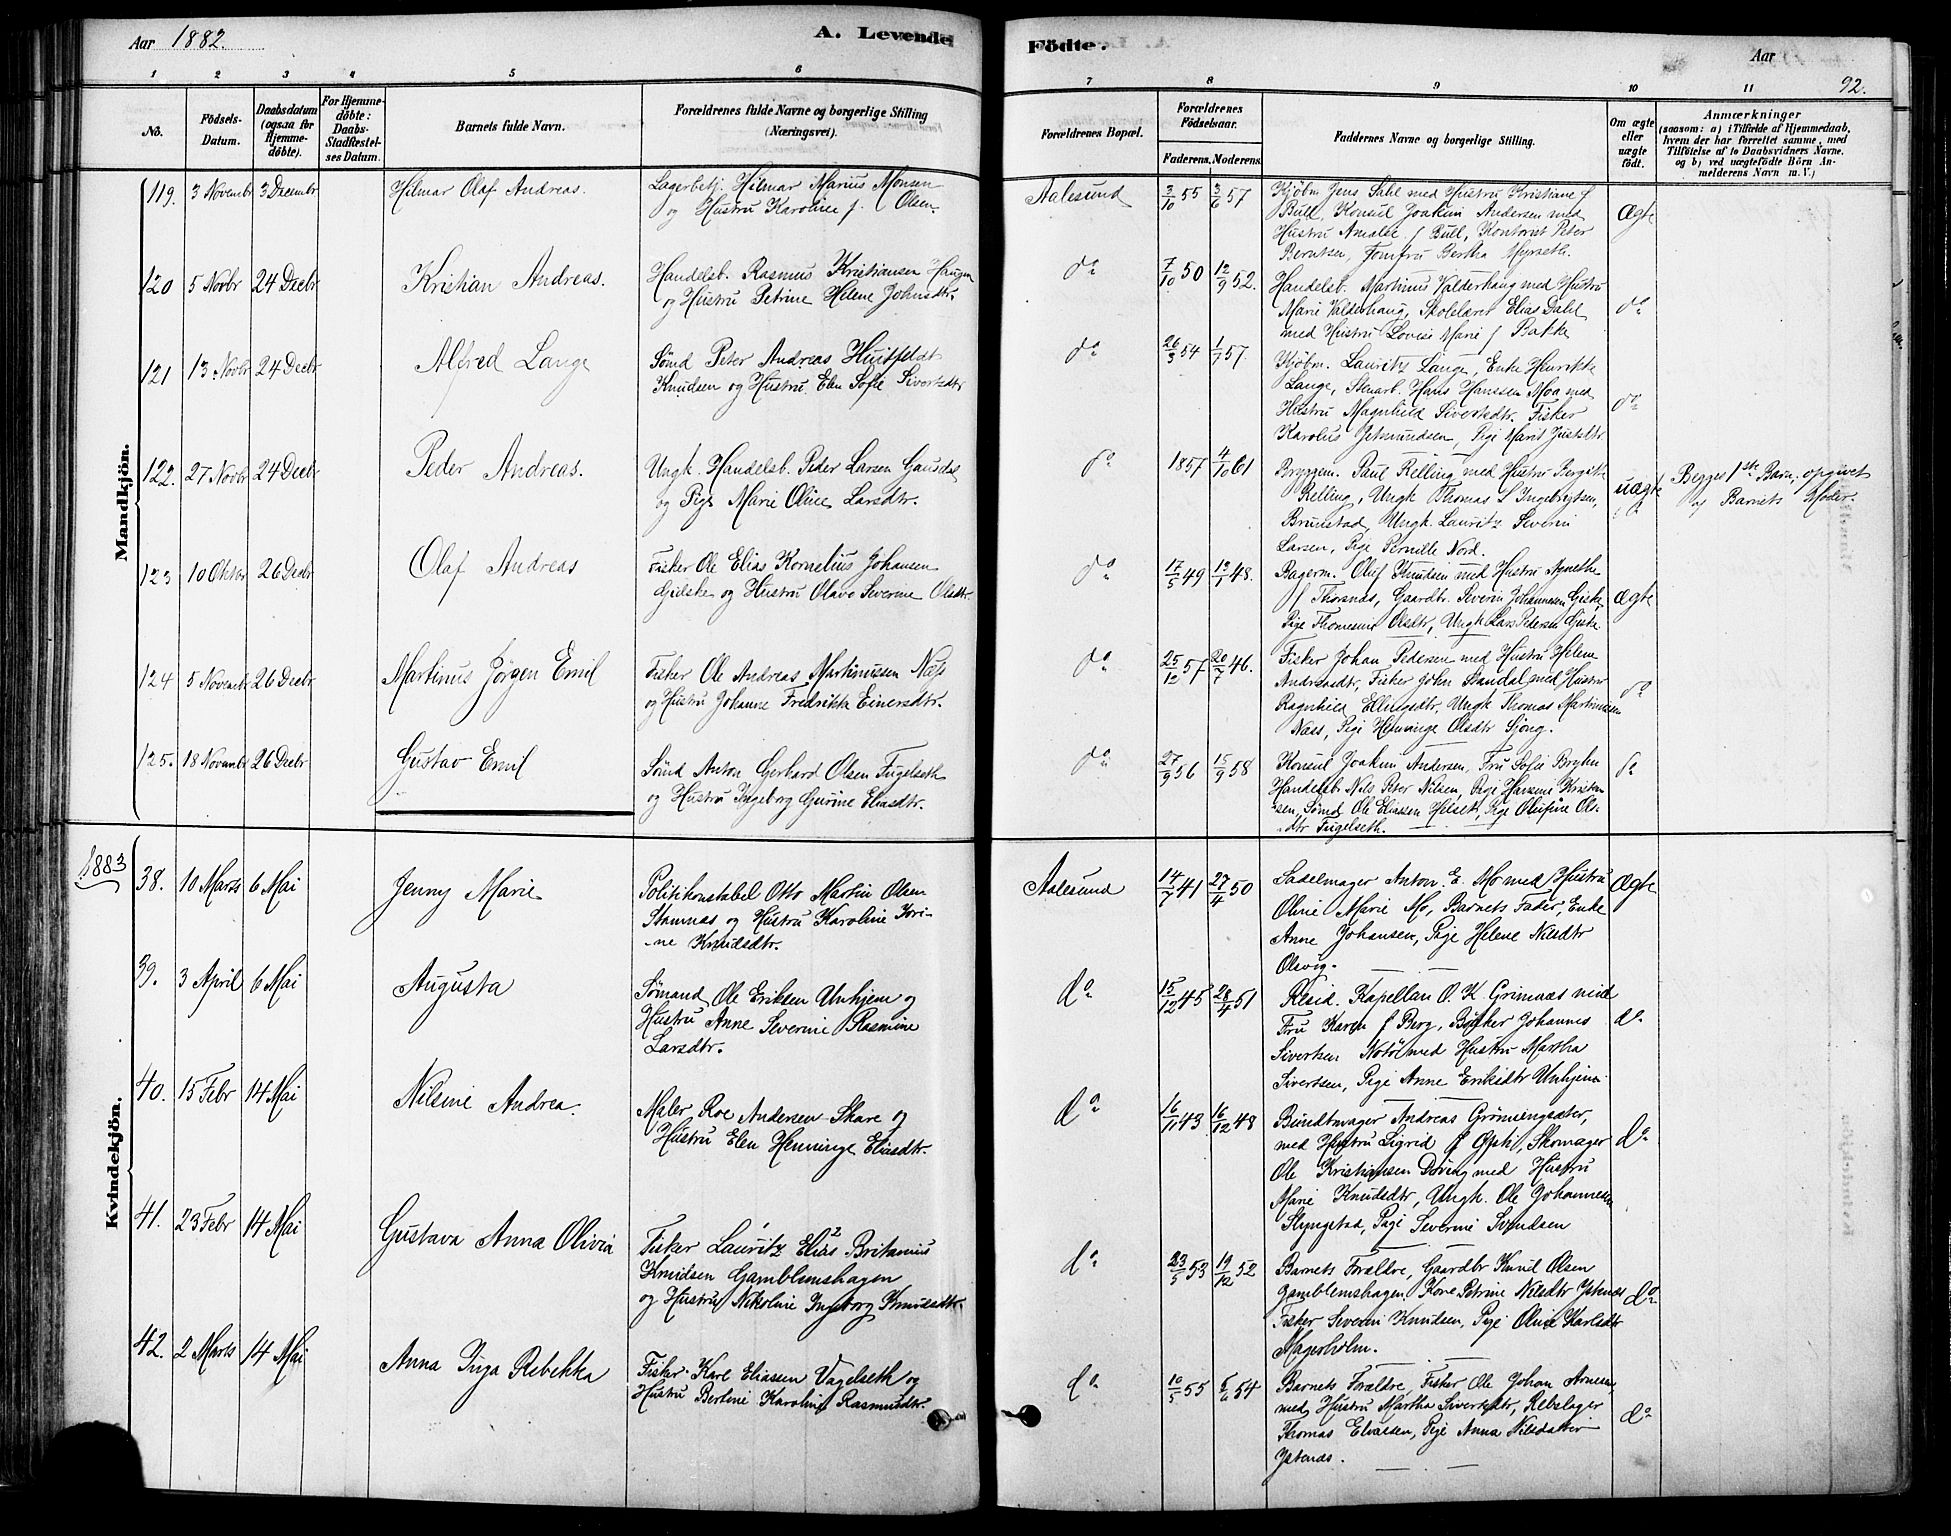 Aar 1882.
A. Levende
Födte.
Aar
92.
1 2 3 4 5 6 7 8 9 10 11
No.
Födsels-Datum.
Daabsdatum (ogsaa for Hjemme-döbte).
For Hjemme-döbte: Daabs-Stadfæstel-ses Datum.
Barnets fulde Navn.
Forældrenes fulde Navne og borgerlige Stilling (Næringsvei).
Forældrenes Bopæl.
Forældrenes Födselsaar.
Faderens. Moderens.
Faddernes Navne og borgerlige Stilling.
Om ægte eller uægte födt.
Anmærkninger
(saasom: a) i Tilfælde af Hjemmedaab,
hvem der har forrettet samme, med
Tilföielse af to Daabsvidners Navne,
og b) ved uægtefödte Börn An-
melderens Navn m. V.)
Mandkjön.
119. 3 Novembr 3 Decembr Hilmar Olaf Andreas.
Lagerbetj. Hilmar Marius Monsen
og Hustru Karoline f. Olsen.
Aalesund 3/10 55 3/6 57
Kjöbm. Jens Dahl med Hustru Kristiane f
Bull, Konsul Joakim Andersen med
Hustru Amalie f Bull, Kontorist Peter
Berntsen, Jomfru Bertha Myrseth.
Ægte
120 5 Novbr 24 Decbr Kristian Andreas.
Handelsb. Rasmus Kristiansen Haugen
og Hustru Petrine Helene Johnsdtr.
do 7/10 50 12/9 52.
Handelsb. Martinus Valderhaug med Hustru
Marie Valderhaug, Skolelærer Elias Dahl
med Hustru Lovise Marie f Bakke
do
121 13 Novbr 24 Decbr Alfred Lange
Sömd Peter Andreas Huitfeldt
Knudsen og Hustru Elen Sofie Sivertsdtr
do 26/3 54 1/7 57.
Kjöbm. Lauritz Lange, Enke Henrikke
Lange, Stenarb. Hans Hanssen Moa med
Hustru Magnhild Sivertsdtr. Fisker
Karolus Jetmundsen, Pige Marit Justsdtr.
do
122. 27 Novbr 24 Decbr Peder Andreas.
Ungk. Handelsb. Peder Larsen Gausdal
og Pige Marie Oline Larsdtr.
do 1857 4/10 61
Bryggem. Paul Relling med Hustru Bergith
Relling, Ungk Thomas S Ingebrigtsen,
Brunstad, Ungk. Lauritz Severin
Larsen, Pige Pernille Nord.
uægte
Begges 1ste Barn, opgivet
af Barnets Moder.
123 10 Oktbr 26 Decbr Olaf Andreas
Fisker Ole Elias Kornelius Johansen
Gidske og Hustru Olave Severine Olsdtr.
do 17/5 49 13/1 48.
Bagerm. Oluf Knudsen med Hustru Agnethe
f Thorsnæs, Gaardbr. Severin Johannesen Giske,
Pige Thomesine Olsdtr, Ungk Lars Pedersen Giske
ægte
124 5 Novembr 26 Decbr Martinus Jörgen Emil
Fisker Ole Andreas Martinussen Næss
og Hustru Johanne Fredrikke Einersdtr.
do 25/12 57 20/7 46.
Fisker Johan Pedersen med Hustru Helene
Andreasdtr, Fisker John Standal med Hustru
Ragnhild Ellingsdtr. Ungk Thomas Martinussen
Næss, Pige Henninge Olsdtr Sjong.
do
125. 18 Novembr 26 Decbr Gustav Emil
Sömd Anton Gerhard Olsen Fugelseth
og Hustru Ingeborg Gurine Eliasdtr.
do 27/9 56 15/9 58
Konsul Joakim Andersen, Fru Sofie Bryhn
Handelsb. Nils Peter Nilsen, Pige Hansine Kristian
sen, Sömd Ole Eliassen Helseth, Pige Olufine Ols-
dtr Fugelseth.
do
1883
Kvindekjön.
38. 10 Marts 6 Mai Jenny Marie
Politikonstabel Otto Martin Olsen
Stamnæs og Hustru Karoline Jori-
ne Knudsdtr.
Aalesund 14/7 41 27/4 50
Sadelmager Anton E. Mo med Hustru
Oline Marie Mo, Barnets Fader, Enke
Anne Johansen, Pige Helene Nilsdtr
Olsvig.
Ægte
39. 3 April 6 Mai Augusta
Sömand Ole Eriksen Unhjem og
Hustru Anne Severine Rasmine
Larsdtr.
do 15/12 45 28/4 51
Resid. Kapellan O. K. Grimnæs med
Fru Karen f Berg, Bödker Johannes
Sivertsen Notö med Hustru Martha
Sivertsen, Pige Anne Eriksdtr Unhjem
do
40. 15 Febr 14 Mai Nilsine Andrea.
Maler Roe Andersen Skare og
Hustru Elen Henninge Eliasdtr.
do 16/11 43 16/12 48
Bundtmager Andreas Grönningsæter,
med Hustru Sigrid f Opti, Skomager
Ole Kristiansen Döving med Hustru
Marie Knudsdtr, Ungk. Ole Johannesen
Slyngstad, Pige Severine Svendsen
do
41. 23 Febr 14 Mai Gustava Anna Olivia
Fisker Lauritz Elias Britanius
Knudsen Gamblemshagen
og Hustru Nikoline Ingeborg Knudsdtr.
do 23/5 53 19/12 52
Barnets Forældre, Gaardbr Knud Olsen
Gamblemshagen, Kone Petrine Nilsdtr Ystenæs
Fisker Severin Knudsen, Pige Oline Karlsdtr
Magerholm.
do
42. 2 Marts 14 Mai Anna Inga Rebekka
Fisker Karl Eliassen Vagelseth og
Hustru Bertine Karoline Rasmusdtr
do 10/5 55 5/6 54
Barnets Forældre, Fisker Ole Johan Arnesen
med Hustru Martha Sivertsdtr, Rebslager
Thomas Eliassen, Pige Anna Nilsdatter
Ystenæs.
do